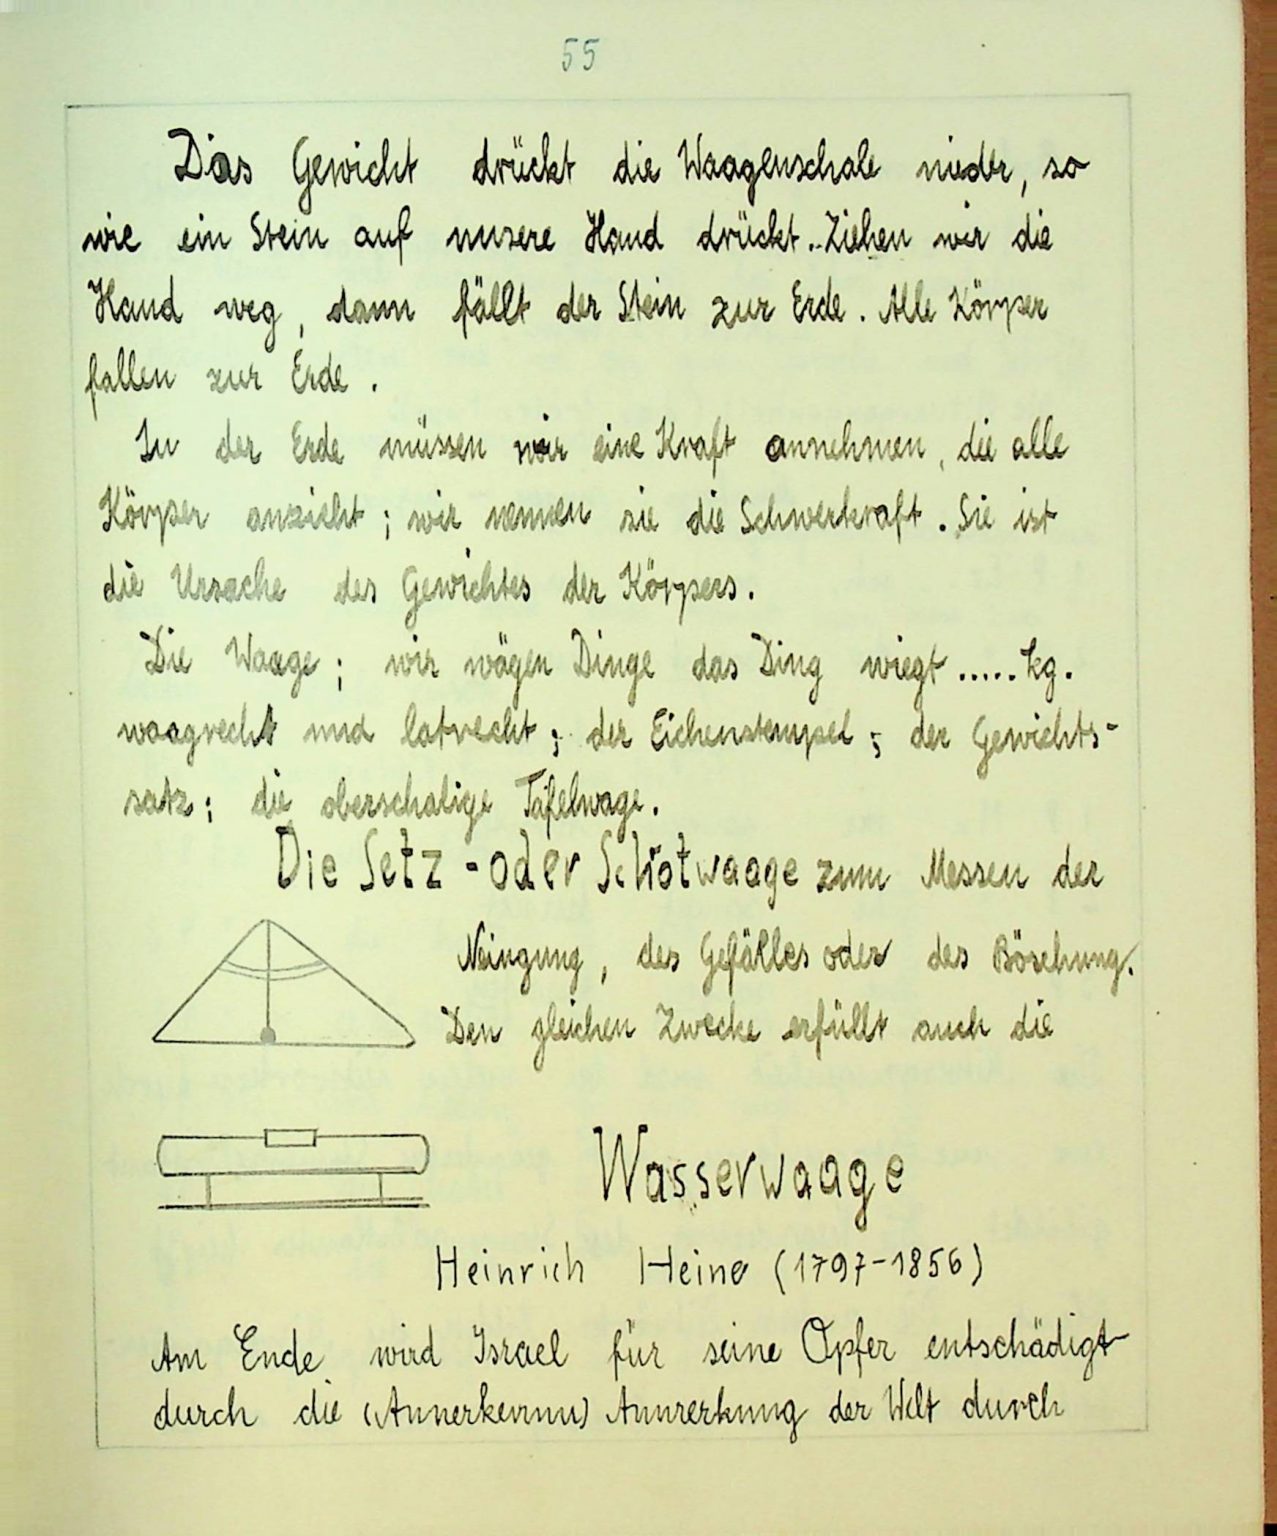 55
Das Gewicht drückt die Waagenschale nieder, so
wie ein Stein auf unsere Hand drückt. Ziehen wir die
Hand weg, dann fällt der Stein zur Erde. Alle Körper
fallen zur Erde.
In der Erde müssen wir eine Kraft annehmen, die alle
Körper anzieht; wir nennen sie die Schwerkraft. Sie ist
die Ursache des Gewichtes der Körpers.
Die Waage; wir wägen Dinge das Ding wiegt ..... kg.
waagrecht und lotrecht; der Eichenstempel; der Gewichts-
satz; die oberschalige Tafelwage.
Die Setz - oder Schrotwaage zum Messen der
Neingung, des Gefälles oder des Böschung.
Den gleichen Zwecke erfüllt auch die
Wasserwaage
Heinrich Heine (1797-1856)
Am Ende wird Israel für seine Opfer entschädigt
durch die (Annerkennu) Annrerkung der Welt durch